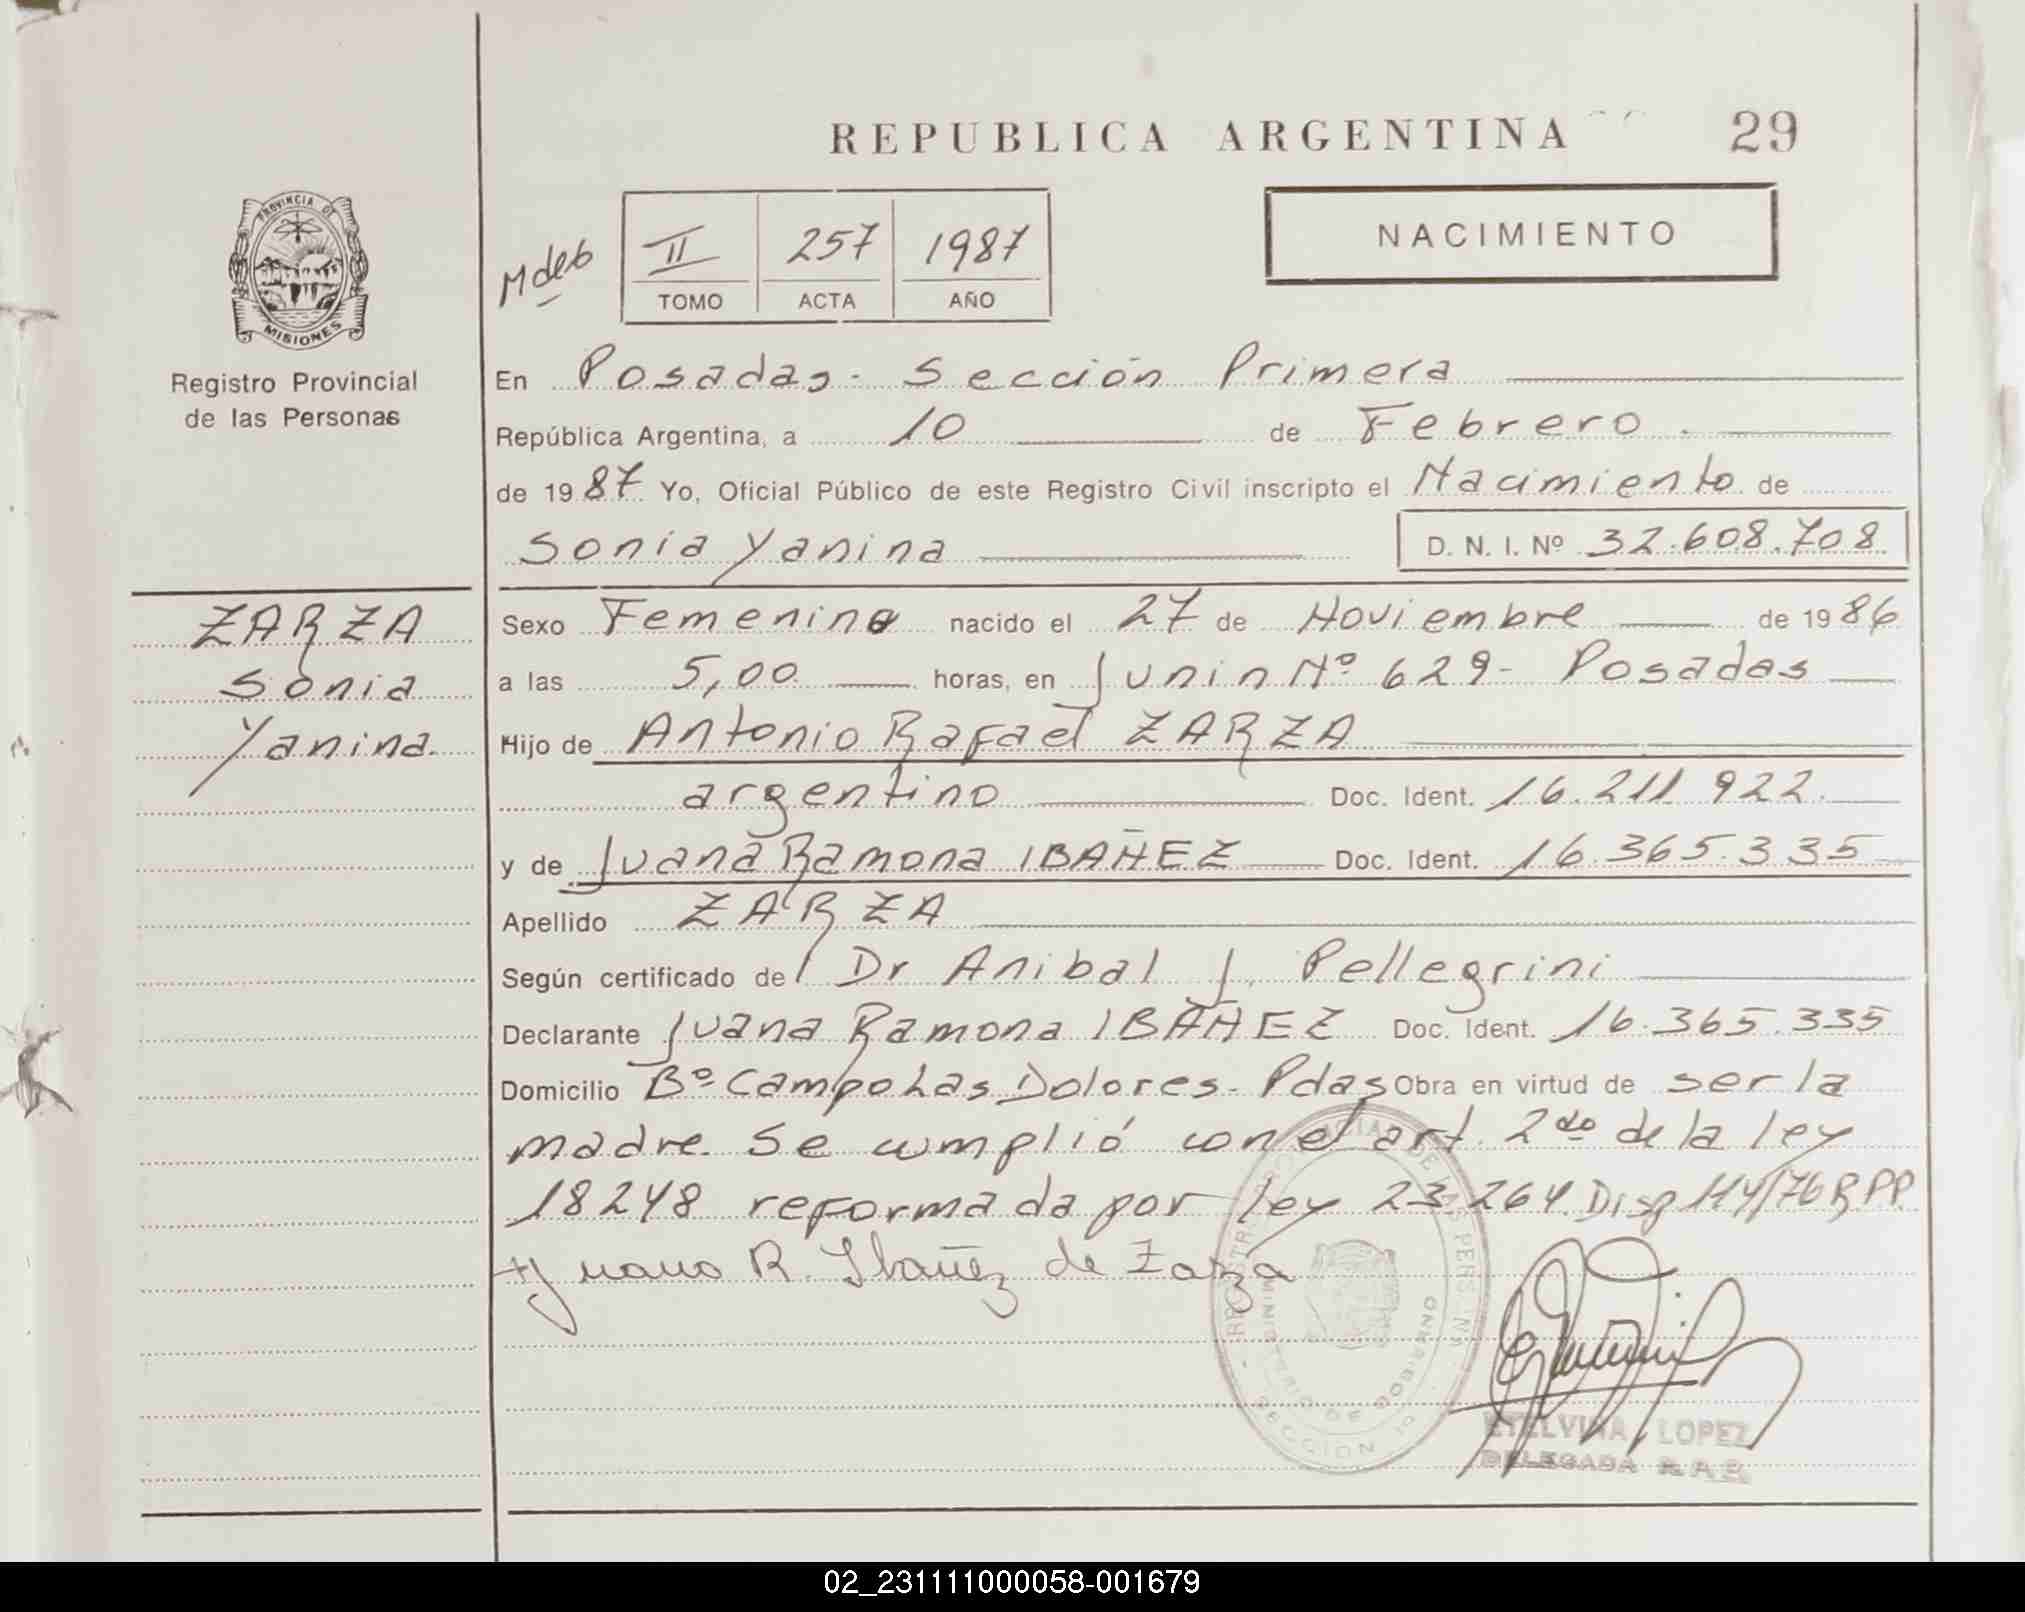 REPUBLICA ARGENTINA
29
PROVINCIA DE
MISIONES
Registro Provincial
de las Personas
Mdeb
II 257 1987
TOMO ACTA AÑO
NACIMIENTO
En Posadas - Sección Primera
República Argentina, a 10 de Febrero
de 1987 Yo, Oficial Público de este Registro Civil inscripto el Nacimiento de
Sonia Yanina D. N. I. Nº 32.608.708
ZARZA
Sonia
Yanina.
Sexo Femenino nacido el 27 de Noviembre de 1986
a las 5,00 horas, en Junin Nº 629 - Posadas
Hijo de Antonio Rafael ZARZA
argentino Doc. Ident. 16.211.922.
y de Juana Ramona IBAÑEZ Doc. Ident. 16.365.335
Apellido ZARZA
Según certificado de Dr Anibal J. Pellegrini
Declarante Juana Ramona IBAÑEZ Doc. Ident. 16.365.335
Domicilio Bº Campo Las Dolores - Pdas Obra en virtud de ser la
madre. Se cumplió con el art. 2do de la ley
18248 reformada por ley 23.264. Disp 114/76 R.P.P.
Juana R. Ibañez de Zarza
MINISTERIO DE GOBIERNO
SECCION 1º
ETELVINA LOPEZ
DELEGADA
02_231111000058-001679